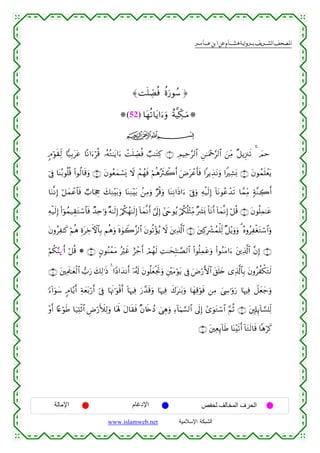 المصحف الشريف برواية هشام عن ابن عامر
﴿ سُورَةُ فُصِّلَتْ ﴾
*مَكِّيَّةٌ وَءَايَاتُهَا (52)*
بِسْمِ ٱللَّهِ ٱلرَّحْمَٰنِ ٱلرَّحِيمِ
حمٓ ۝ تَنزِيلٌ مِّنَ ٱلرَّحْمَٰنِ ٱلرَّحِيمِ ۝ كِتَٰبٌ فُصِّلَتْ ءَايَٰتُهُۥ قُرْءَانًا عَرَبِيًّا لِّقَوْمٍ
يَعْلَمُونَ ۝ بَشِيرًا وَنَذِيرًا فَأَعْرَضَ أَكْثَرُهُمْ فَهُمْ لَا يَسْمَعُونَ ۝ وَقَالُوا۟ قُلُوبُنَا فِىٓ
أَكِنَّةٍ مِّمَّا تَدْعُونَآ إِلَيْهِ وَفِىٓ ءَاذَانِنَا وَقْرٌ وَمِنۢ بَيْنِنَا وَبَيْنِكَ حِجَابٌ فَٱعْمَلْ إِنَّنَا
عَٰمِلُونَ ۝ قُلْ إِنَّمَآ أَنَا۠ بَشَرٌ مِّثْلُكُمْ يُوحَىٰٓ إِلَىَّ أَنَّمَآ إِلَٰهُكُمْ إِلَٰهٌ وَٰحِدٌ فَٱسْتَقِيمُوٓا۟ إِلَيْهِ
وَٱسْتَغْفِرُوهُ ۗ وَوَيْلٌ لِّلْمُشْرِكِينَ ۝ ٱلَّذِينَ لَا يُؤْتُونَ ٱلزَّكَوٰةَ وَهُم بِٱلْأَخِرَةِ هُمْ كَٰفِرُونَ
۝ إِنَّ ٱلَّذِينَ ءَامَنُوا۟ وَعَمِلُوا۟ ٱلصَّٰلِحَٰتِ لَهُمْ أَجْرٌ غَيْرُ مَمْنُونٍ ۝ * قُلْ أَئِنَّكُمْ
لَتَكْفُرُونَ بِٱلَّذِى خَلَقَ ٱلْأَرْضَ فِى يَوْمَيْنِ وَتَجْعَلُونَ لَهُۥٓ أَندَادًا ۚ ذَٰلِكَ رَبُّ ٱلْعَٰلَمِينَ ۝
وَجَعَلَ فِيهَا رَوَٰسِىَ مِن فَوْقِهَا وَبَٰرَكَ فِيهَا وَقَدَّرَ فِيهَآ أَقْوَٰتَهَا فِىٓ أَرْبَعَةِ أَيَّامٍ سَوَآءً
لِّلسَّآئِلِينَ ۝ ثُمَّ ٱسْتَوَىٰٓ إِلَى ٱلسَّمَآءِ وَهِىَ دُخَانٌ فَقَالَ لَهَا وَلِلْأَرْضِ ٱئْتِيَا طَوْعًا أَوْ
كَرْهًا قَالَتَآ أَتَيْنَا طَآئِعِينَ ۝
الحرف المخالف لحفص الإدغام الإمالة
الشبكة الإسلامية www.islamweb.net